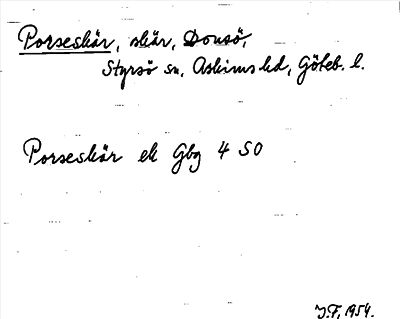 Porseskär, skär, Donsö,
Styrsö sn, Askims hd, Göteb. l.
Porseskär ek Gbg 4 SO
J.F. 1954.